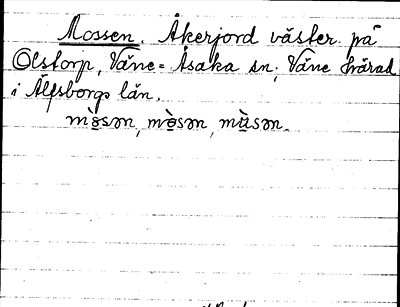 Mossen. Åkerjord väster på
Olstorp, Väne-Åsaka sn; Väne härad
i Älfsborgs län.
mòsən, mòsən, mùsən.